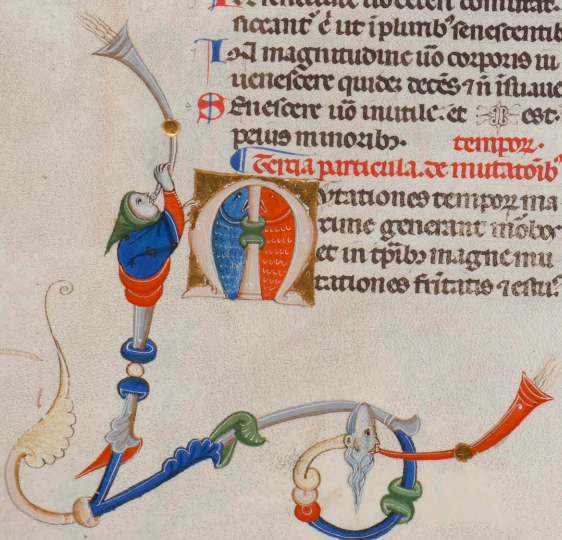 siccantʼ ē ut i pluribꝰ senescentib
In magnitudine ũo corporis iu
uenescere quideꝫ decēs ⁊ ñ isuaue
Senescere ũo inutile. et est.
peius minoribꝰ. tempoꝝ.
Tertia particula. de mutatōibꝰ
Mvtationes tempoꝝ ma
xime generant mōbos
et in tp̃ibꝰ magne mu
tationes fri͂tatis ⁊ estusʼ